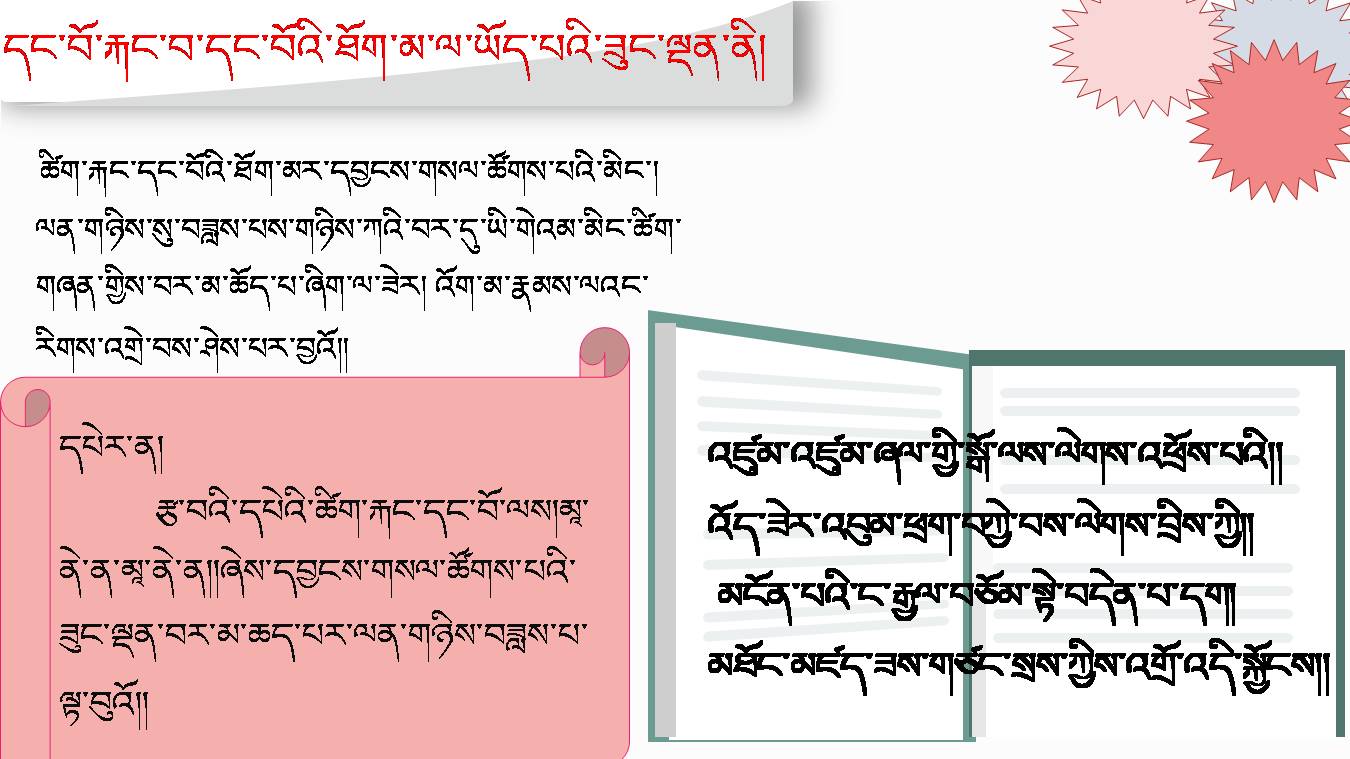 དང་བོ་རྐང་བ་དང་བོའི་ཐོག་མ་ལ་ཡོད་པའི་ཟུང་ལྡན་ནི།
ཚིག་རྐང་དང་བོའི་ཐོག་མར་དབྱངས་གསལ་ཚོགས་པའི་མིང་།
ལན་གཉིས་སུ་བཟླས་པས་གཉིས་ཀའི་བར་དུ་ཡི་གེའམ་མིང་ཚིག་
གཞན་གྱིས་བར་མ་ཆོད་པ་ཞིག་ལ་ཟེར། འོག་མ་རྣམས་ལའང་
རིགས་འགྲེ་བས་ཤེས་པར་བྱའོ།།
དཔེར་ན།
རྩ་བའི་དཔེའི་ཚིག་རྐང་དང་བོ་ལས།མཱ་
ནེ་ན་མཱ་ནེ་ན།།ཞེས་དབྱངས་གསལ་ཚོགས་པའི་
ཟུང་ལྡན་བར་མ་ཆད་པར་ལན་གཉིས་བཟླས་པ་
ལྟ་བུའོ།།
འཛུམ་འཛུམ་ཞལ་གྱི་སྒོ་ལས་ལེགས་འཕྲོས་པའི།།
འོད་ཟེར་འབུམ་ཕྲག་བཀྱེ་བས་ལེགས་བྲིས་ཀྱི།།
མངོན་པའི་ང་རྒྱལ་བཅོམ་སྟེ་བདེན་པ་དག།
མཐོང་མཛད་ཟས་གཙང་སྲས་ཀྱིས་འགྲོ་འདི་སྐྱོངས།།